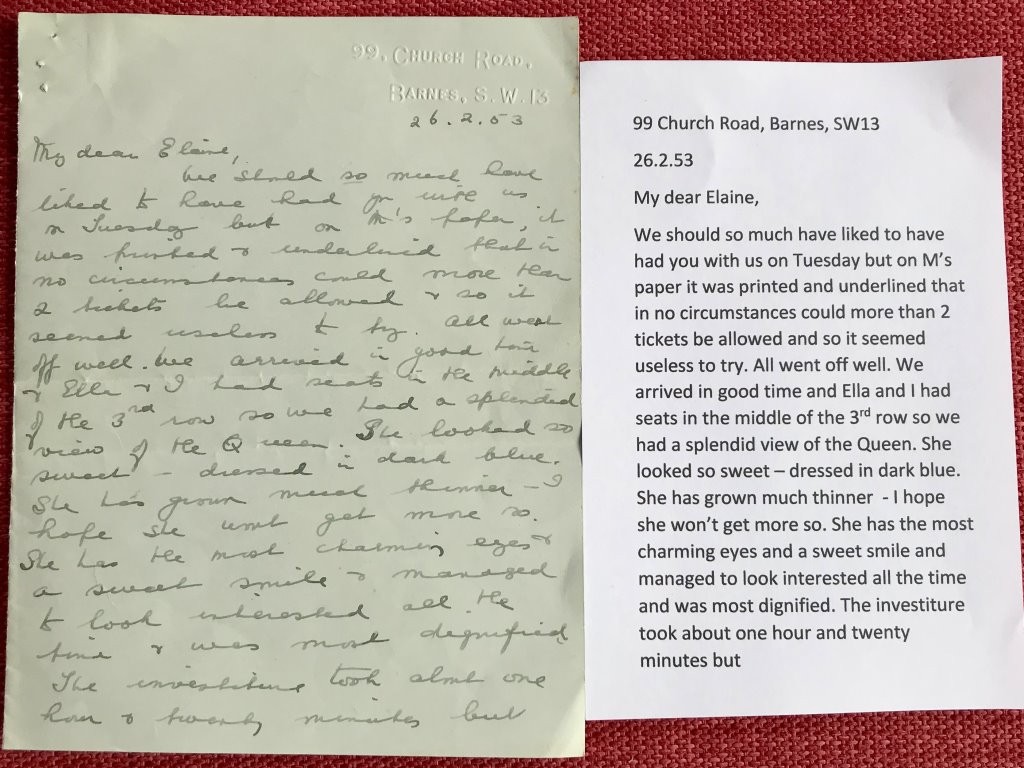 99, CHURCH ROAD,
BARNES, S.W. 13
26.2.53
My dear Elaine,
We should so much have
liked to have had you with us
on Tuesday but on M's paper, it
was printed & underlined that in
no circumstances could more than
2 tickets be allowed & so it
seemed useless to try. All went
off well. We arrived in good time
& Ella & I had seats in the middle
of the 3rd row so we had a splendid
view of the Queen. She looked so
sweet – dressed in dark blue.
She has grown much thinner – I
hope she wont get more so.
She has the most charming eyes &
a sweet smile & managed
to look interested all the
time & was most dignified
The investiture took about one
hour & twenty minutes but
99 Church Road, Barnes, SW13
26.2.53
My dear Elaine,
We should so much have liked to have
had you with us on Tuesday but on M's
paper it was printed and underlined that
in no circumstances could more than 2
tickets be allowed and so it seemed
useless to try. All went off well. We
arrived in good time and Ella and I had
seats in the middle of the 3rd row so we
had a splendid view of the Queen. She
looked so sweet – dressed in dark blue.
She has grown much thinner - I hope
she won't get more so. She has the most
charming eyes and a sweet smile and
managed to look interested all the time
and was most dignified. The investiture
took about one hour and twenty
minutes but